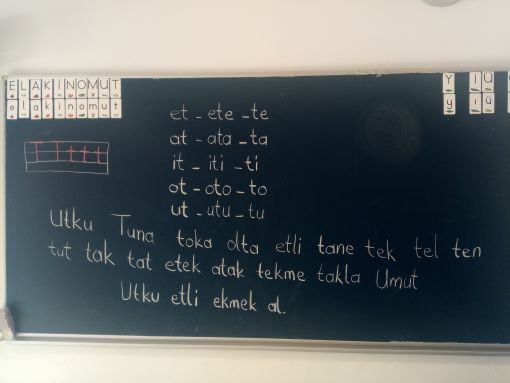 E L A K İ N O M U T
e l a k i n o m u t
Y I Ü
y ı ü
et - ete - te
at - ata - ta
it - iti - ti
ot - oto - to
ut - utu - tu
T T t t t
Utku Tuna toka olta etli tane tek tel ten
tut tak tat etek atak tekme takla Umut
Utku etli ekmek al.